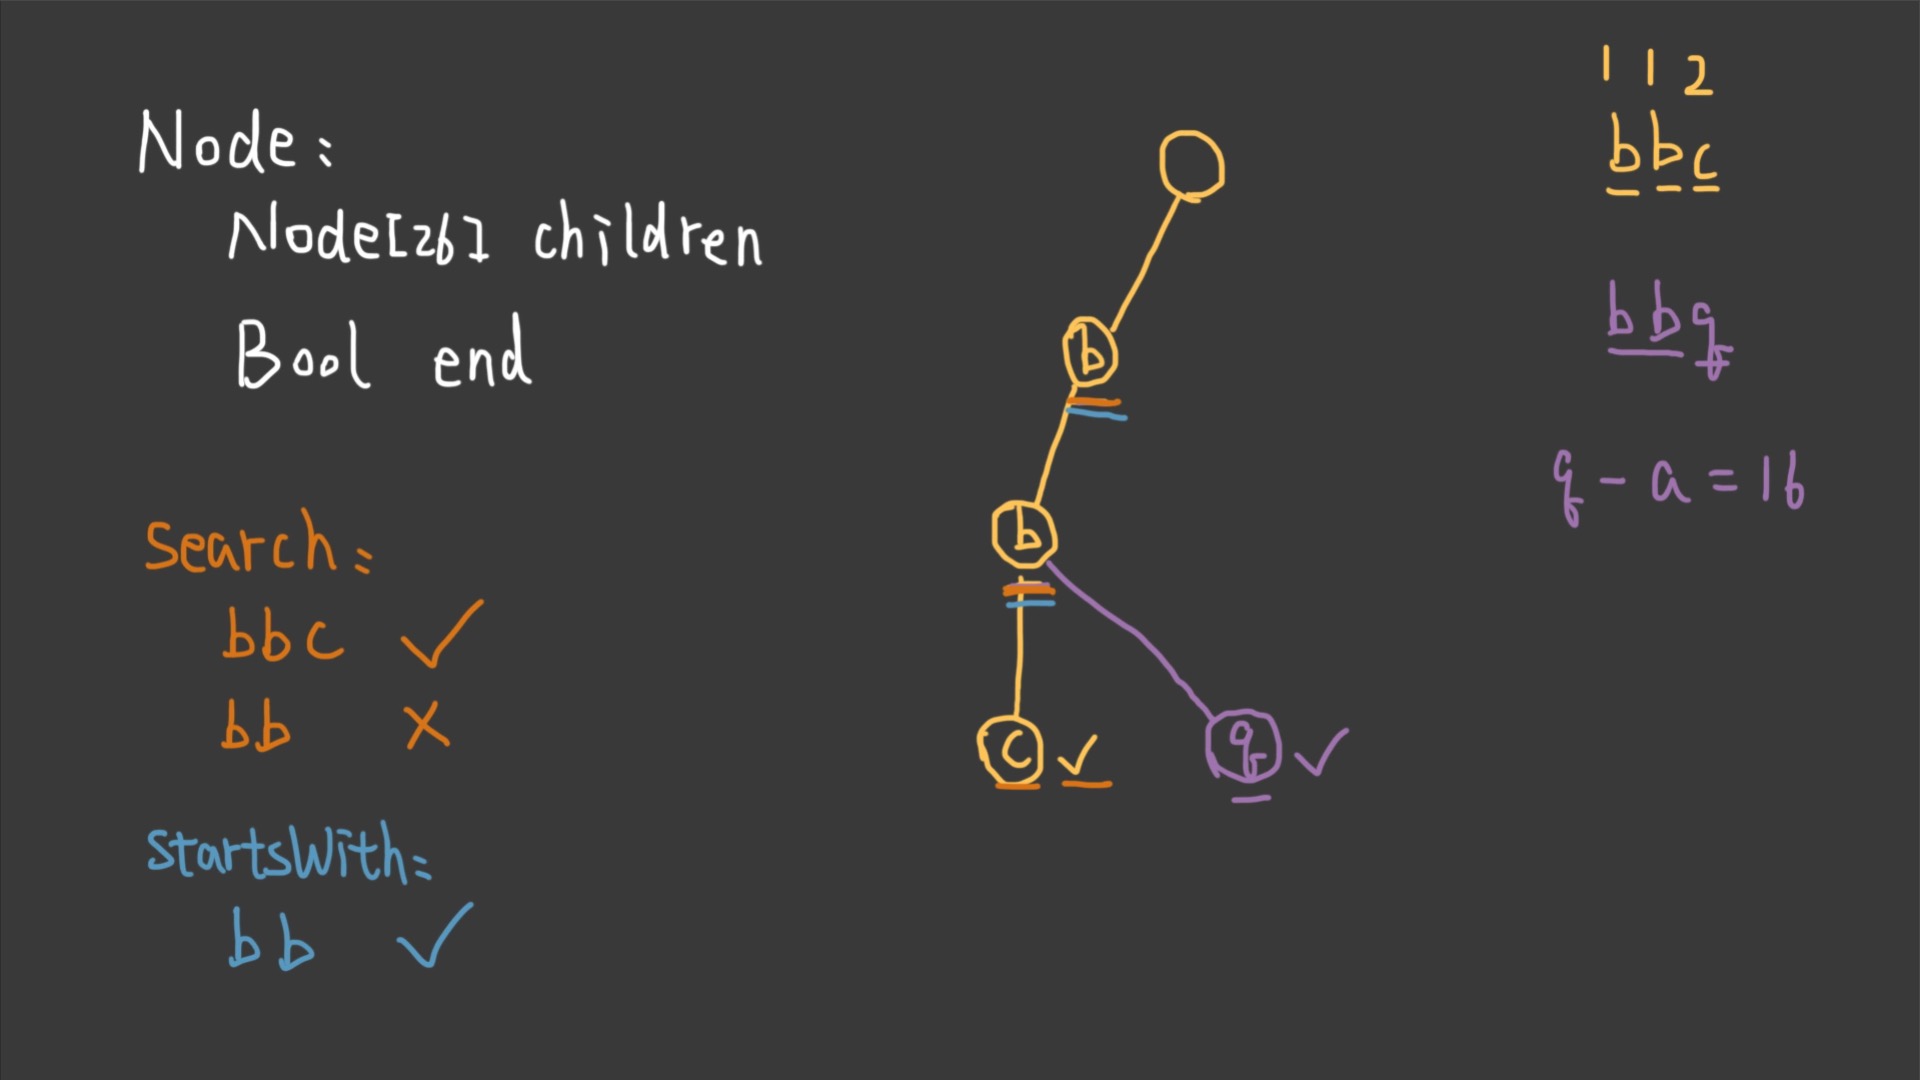 Node:
Node[26] children
Bool end
Search:
bbc ✓
bb ×
startsWith:
bb ✓
b
b
c ✓
q ✓
1 1 2
bbc
bbq
q - a = 16